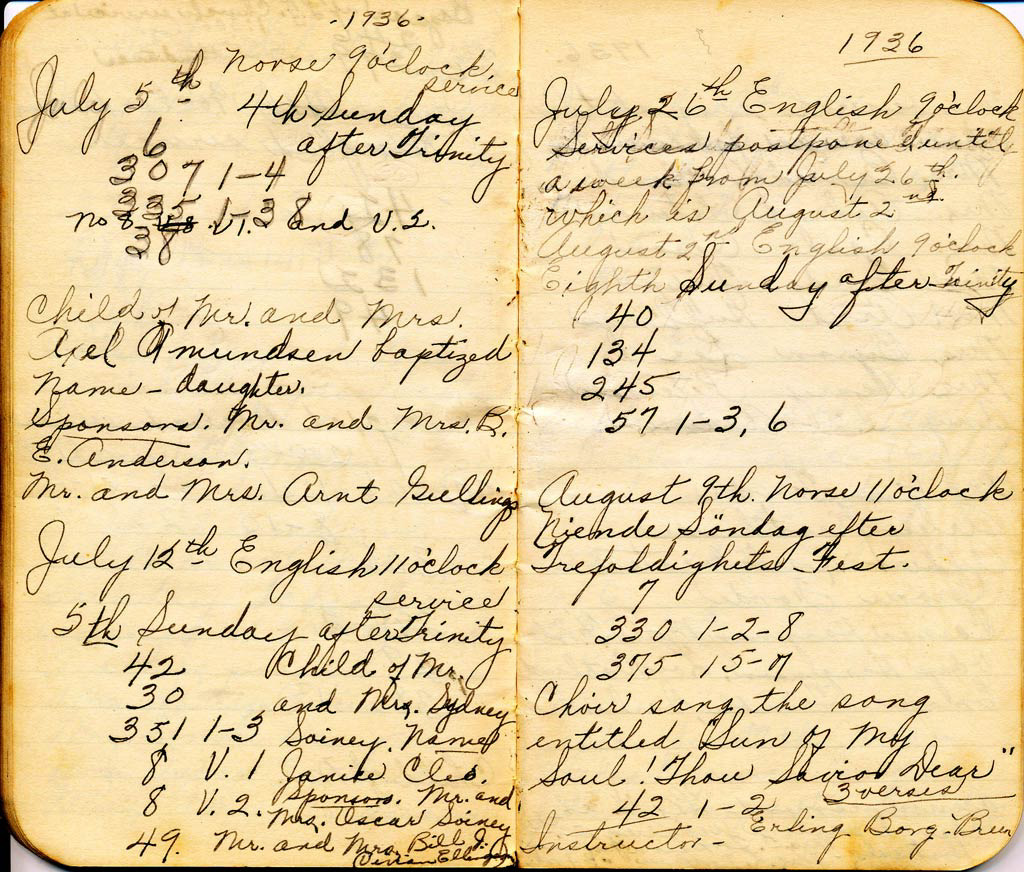 1936
Norse 9 o'clock
July 5th service
4th Sunday
after Trinity
6
307 1-4
335 1-3 8
No 8 V. 1. and V. 2.
38
Child of Mr. and Mrs.
Axel Amundsen baptized
Name - daughter.
Sponsors. Mr. and Mrs. B.
E. Anderson.
Mr. and Mrs. Arnt Gullings
July 12th English 11 o'clock
service
5th Sunday after Trinity
42 Child of Mr.
30 and Mrs. Sydney
351 1-3 Soiney. Name
8 V. 1 Janice Cleo.
8 V. 2. Sponsors. Mr. and
Mrs. Oscar Soiney
49. Mr. and Mrs. Bill J.
Vivian
1936
July 26th English 9 o'clock
Services postponed until
a week from July 26th.
which is August 2nd.
August 2nd English 9 o'clock
Eighth Sunday after Trinity
40
134
245
57 1-3, 6
August 9th. Norse 11 o'clock
Niende Söndag efter
Trefoldighets Fest.
7
330 1-2-8
375 15-7
Choir sang the song
entitled Sun of My
Soul! Thou Savior Dear"
3 verses
42 1-2
Erling Borg-Breen
Instructor-